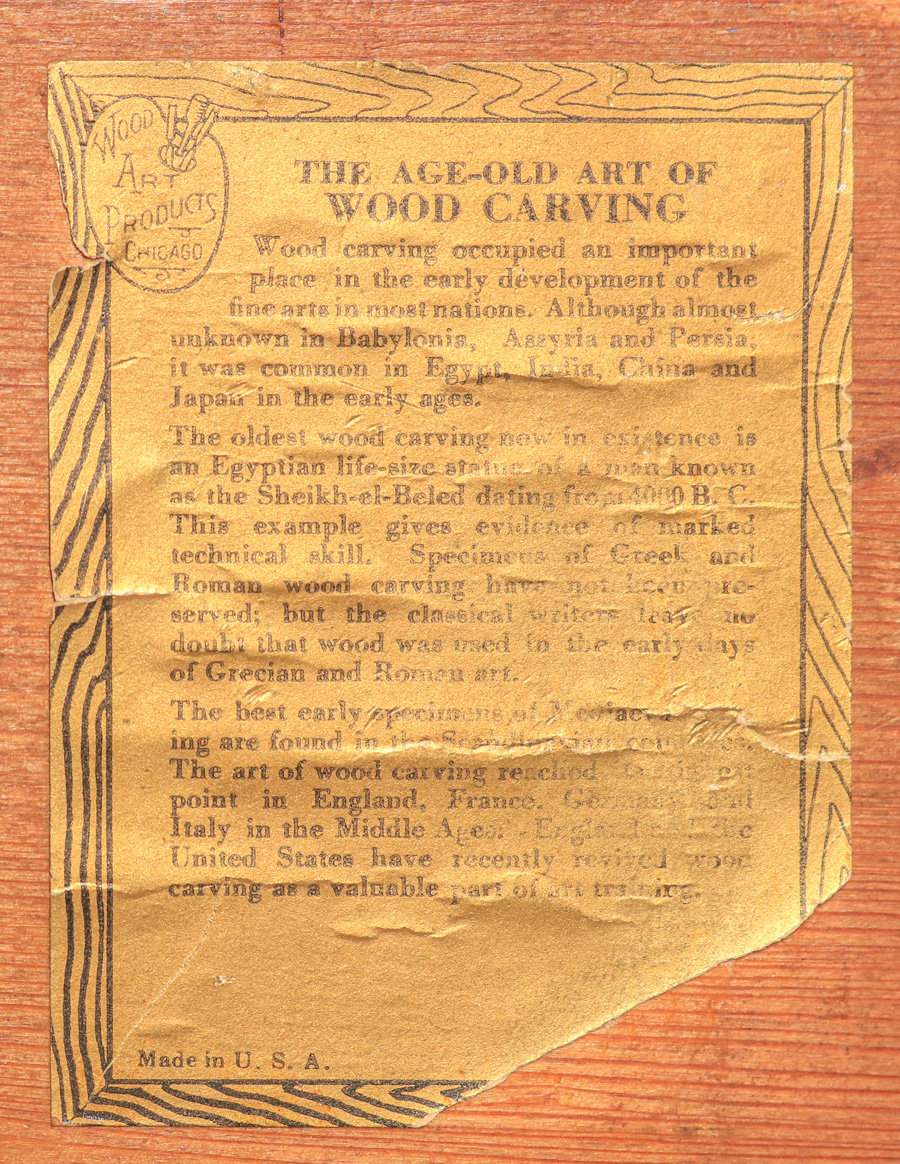 WOOD
ART
PRODUCTS
CHICAGO
THE AGE-OLD ART OF
WOOD CARVING
Wood carving occupied an important
place in the early development of the
fine arts in most nations. Although almost
unknown in Babylonia, Assyria and Persia,
it was common in Egypt, India, China and
Japan in the early ages.
The oldest wood carving now in existence is
an Egyptian life-size statue of a man known
as the Sheikh-el-Beled dating from 4000 B. C.
This example gives evidence of marked
technical skill. Specimens of Greek and
Roman wood carving have not been pre-
served; but the classical writers leave no
doubt that wood was used in the early days
of Grecian and Roman art.
The best early specimens of
ing are found in the Scandinavian
The art of wood carving reached
point in England, France, Germany and
Italy in the Middle Ages. England and the
United States have recently revived wood
carving as a valuable part of art training.
Made in U. S. A.